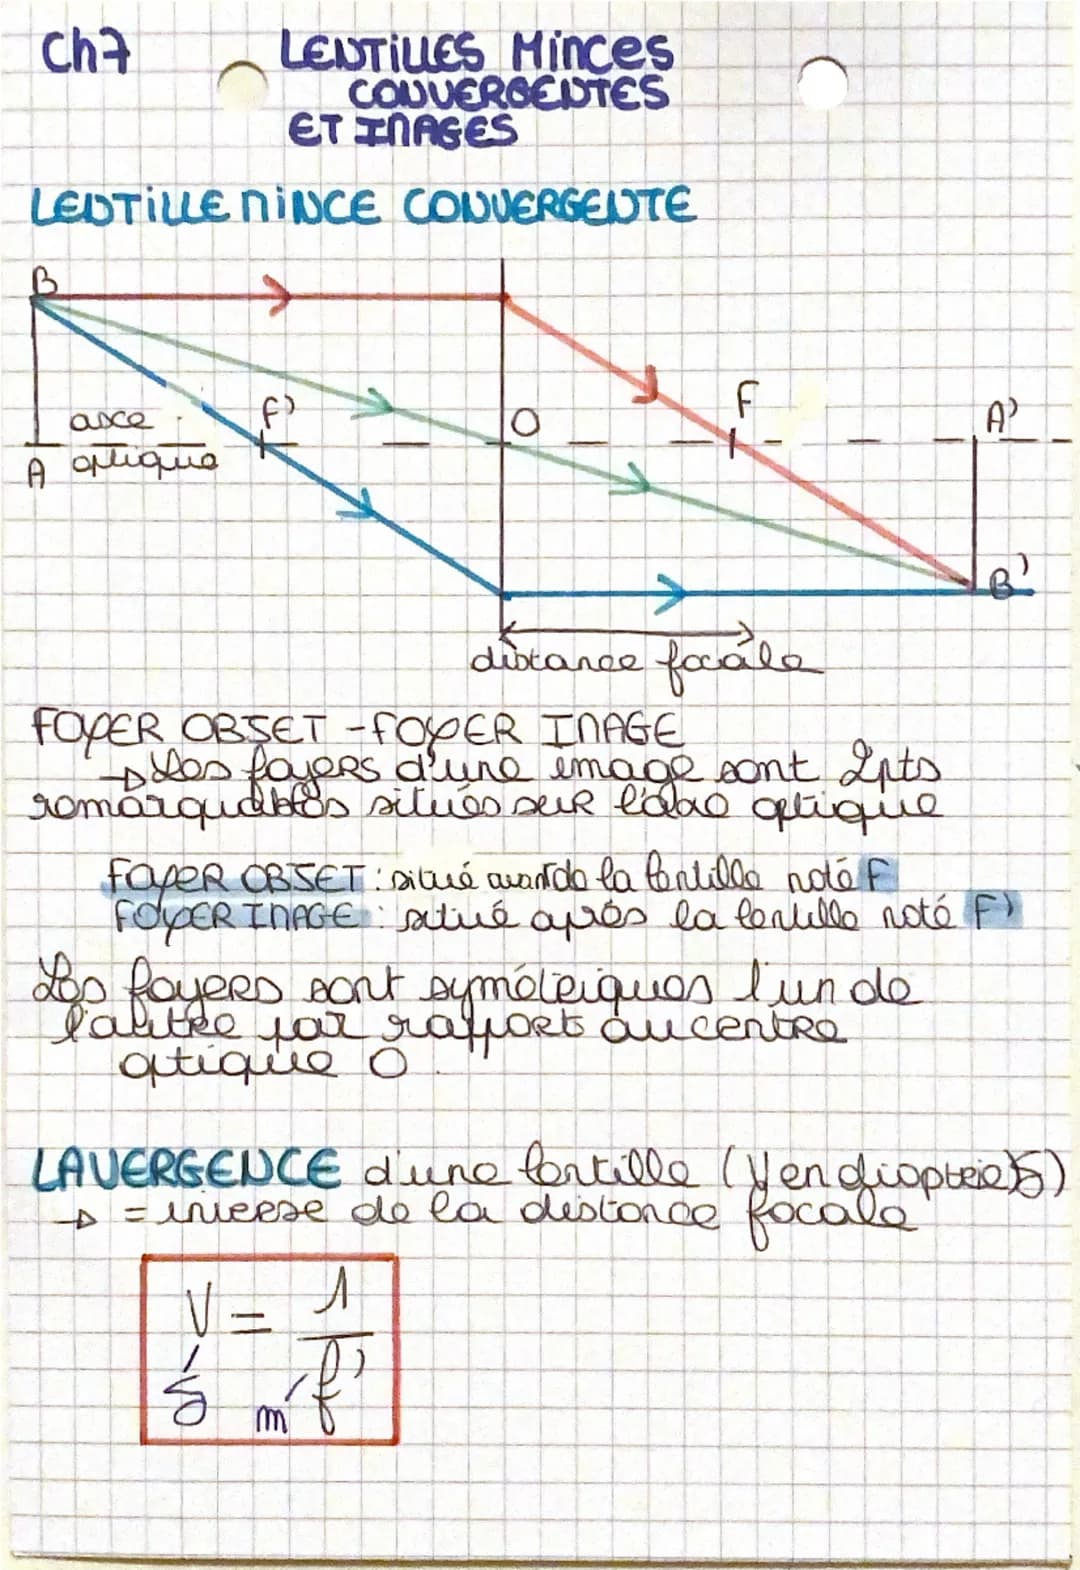 Ch7
LENTILLES MINCES
CONVERGENTES
ET IMAGES
LENTILLE MINCE CONVERGENTE
B
axe
optique
A
F'
O
F
A'
B'
distance focale
FOYER OBJET - FOYER IMAGE
→ Les foyers d'une image sont 2pts
remarquables situés sur l'axe optique
FOYER OBJET : situé avant de la lentille noté F
FOYER IMAGE : situé après la lentille noté F'
Les foyers sont symétriques l'un de
l'autre par rapport au centre
optique O.
LA VERGENCE d'une lentille (V en dioptrie δ)
→ = inverse de la distance focale
V = 1
f'
δ m